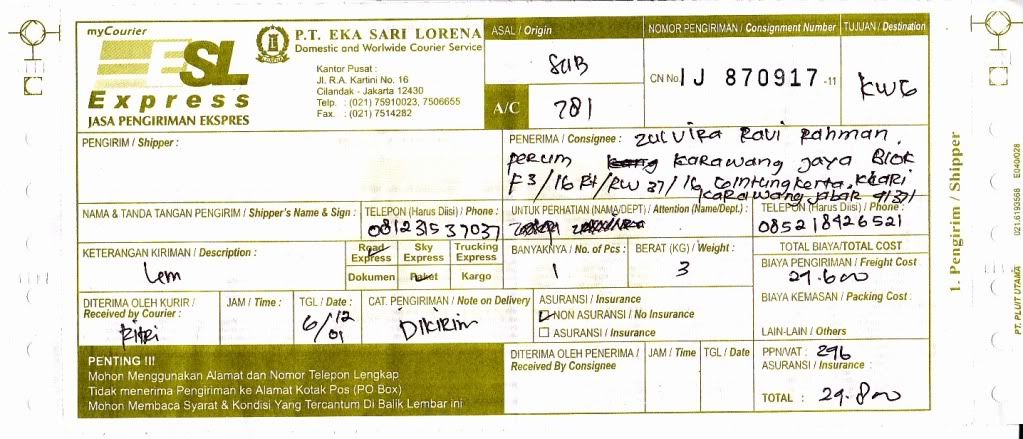 myCourier
ESL
Express
JASA PENGIRIMAN EKSPRES
P.T. EKA SARI LORENA
Domestic and Worlwide Courier Service
Kantor Pusat :
Jl. R.A. Kartini No. 16
Cilandak - Jakarta 12430
Telp. : (021) 75910023, 7506655
Fax. : (021) 7514282
ASAL / Origin
SUB
A/C
781
NOMOR PENGIRIMAN / Consignment Number
CN No. IJ 870917 -11
TUJUAN / Destination
KWG
PENGIRIM / Shipper :
PENERIMA / Consignee : Zulvira Ravi Rahman.
perum karawang jaya Blok
F3/16 Rt/RW 37/16 Cintungkerta, Klari
karawang jabar 41371
NAMA & TANDA TANGAN PENGIRIM / Shipper's Name & Sign :
TELEPON (Harus Diisi) / Phone :
081231537037
UNTUK PERHATIAN (NAMA/DEPT) / Attention (Name/Dept.) :
TELEPON (Harus Diisi) / Phone :
085218426521
KETERANGAN KIRIMAN / Description :
Lem
Road Express
Sky Express
Trucking Express
Dokumen
Paket
Kargo
BANYAKNYA / No. of Pcs :
1
BERAT (KG) / Weight :
3
TOTAL BIAYA/TOTAL COST
BIAYA PENGIRIMAN / Freight Cost :
29.600
BIAYA KEMASAN / Packing Cost :
LAIN-LAIN / Others
DITERIMA OLEH KURIR /
Received by Courier :
JAM / Time :
TGL / Date :
6/12
01
CAT. PENGIRIMAN / Note on Delivery
Dikirim
ASURANSI / Insurance
NON ASURANSI / No Insurance
ASURANSI / Insurance
PENTING !!!
Mohon Menggunakan Alamat dan Nomor Telepon Lengkap
Tidak menerima Pengiriman ke Alamat Kotak Pos (PO Box)
Mohon Membaca Syarat & Kondisi Yang Tercantum Di Balik Lembar ini
DITERIMA OLEH PENERIMA /
Received By Consignee
JAM / Time
TGL / Date
PPN/VAT : 296
ASURANSI / Insurance :
TOTAL : 29.800
1. Pengirim / Shipper
PT. PLUIT UTAMA 021.6193568 E040/028